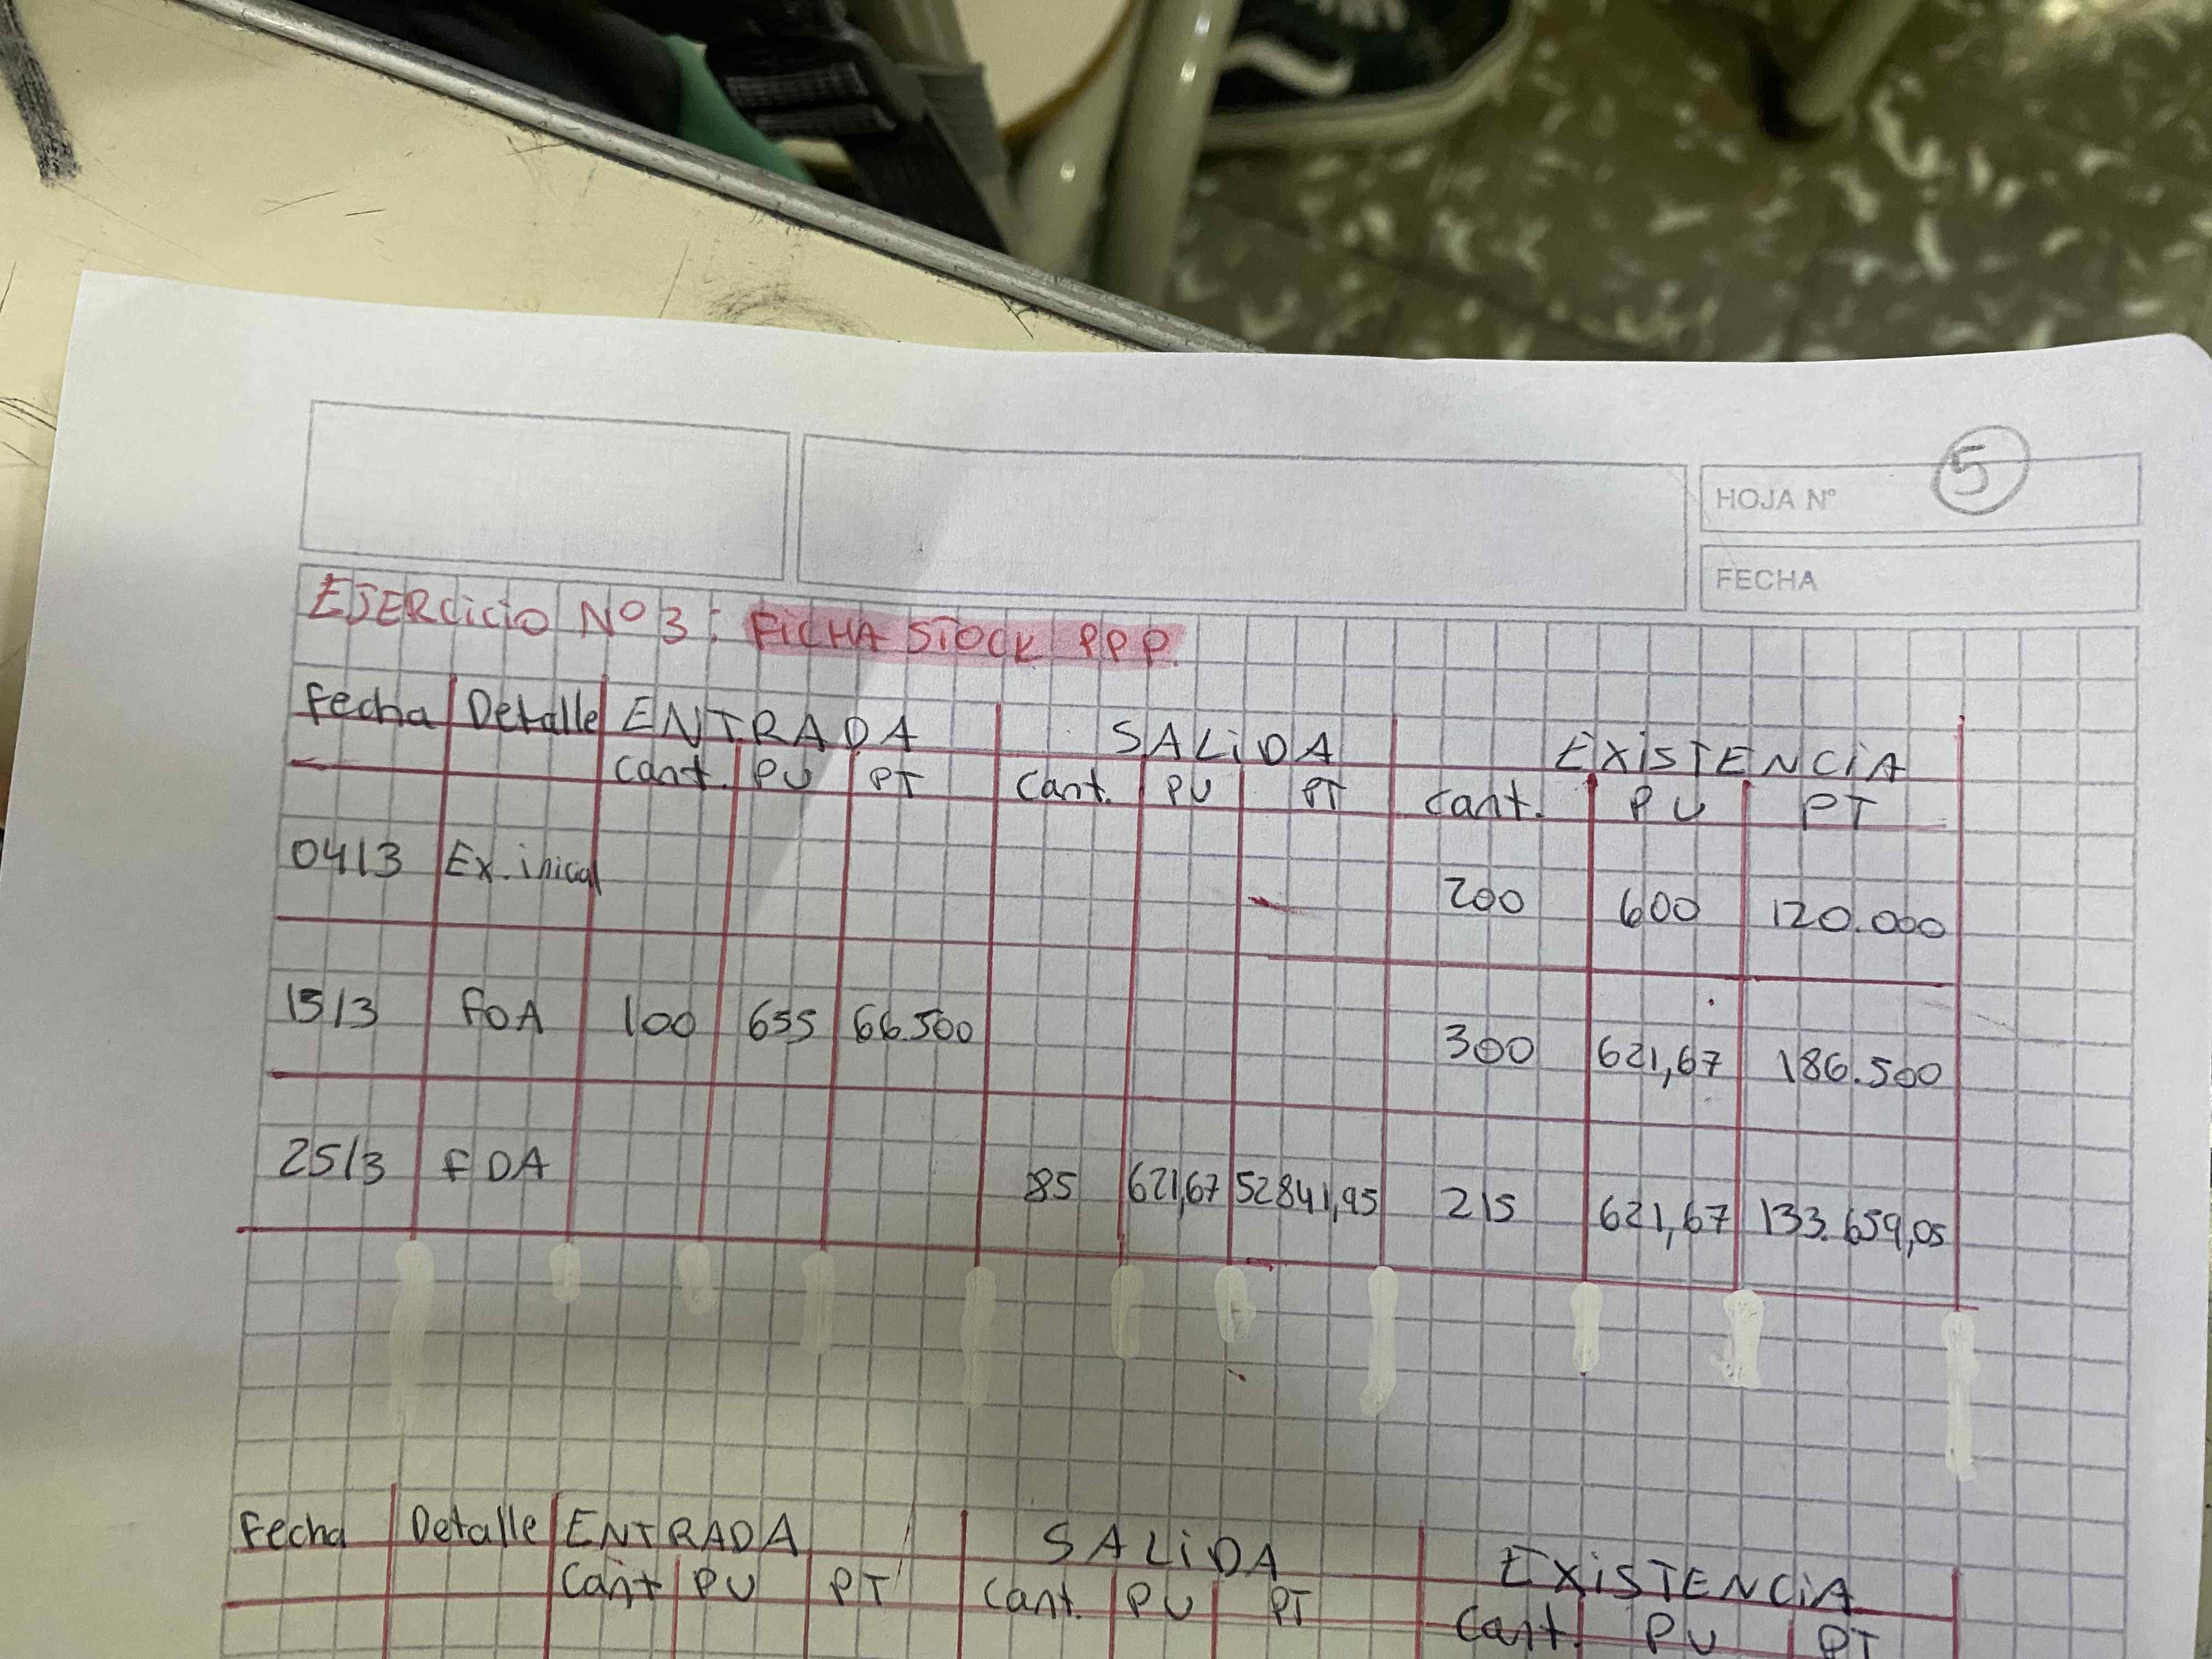 5
HOJA Nº
FECHA
EJERCiCiO Nº 3: FiCHA STOCK PPP.
Fecha Detalle ENTRADA SALiDA EXiSTENCiA
Cant. PU PT Cant. PU PT Cant. PU PT
04/3 Ex. inicial 200 600 120.000
15/3 FOA 100 655 66.500 300 621,67 186.500
25/3 FDA 85 621,67 52841,95 215 621,67 133.659,05
Fecha Detalle ENTRADA SALiDA EXiSTENCiA
Cant PU PT Cant. PU PT Cant. PU PT